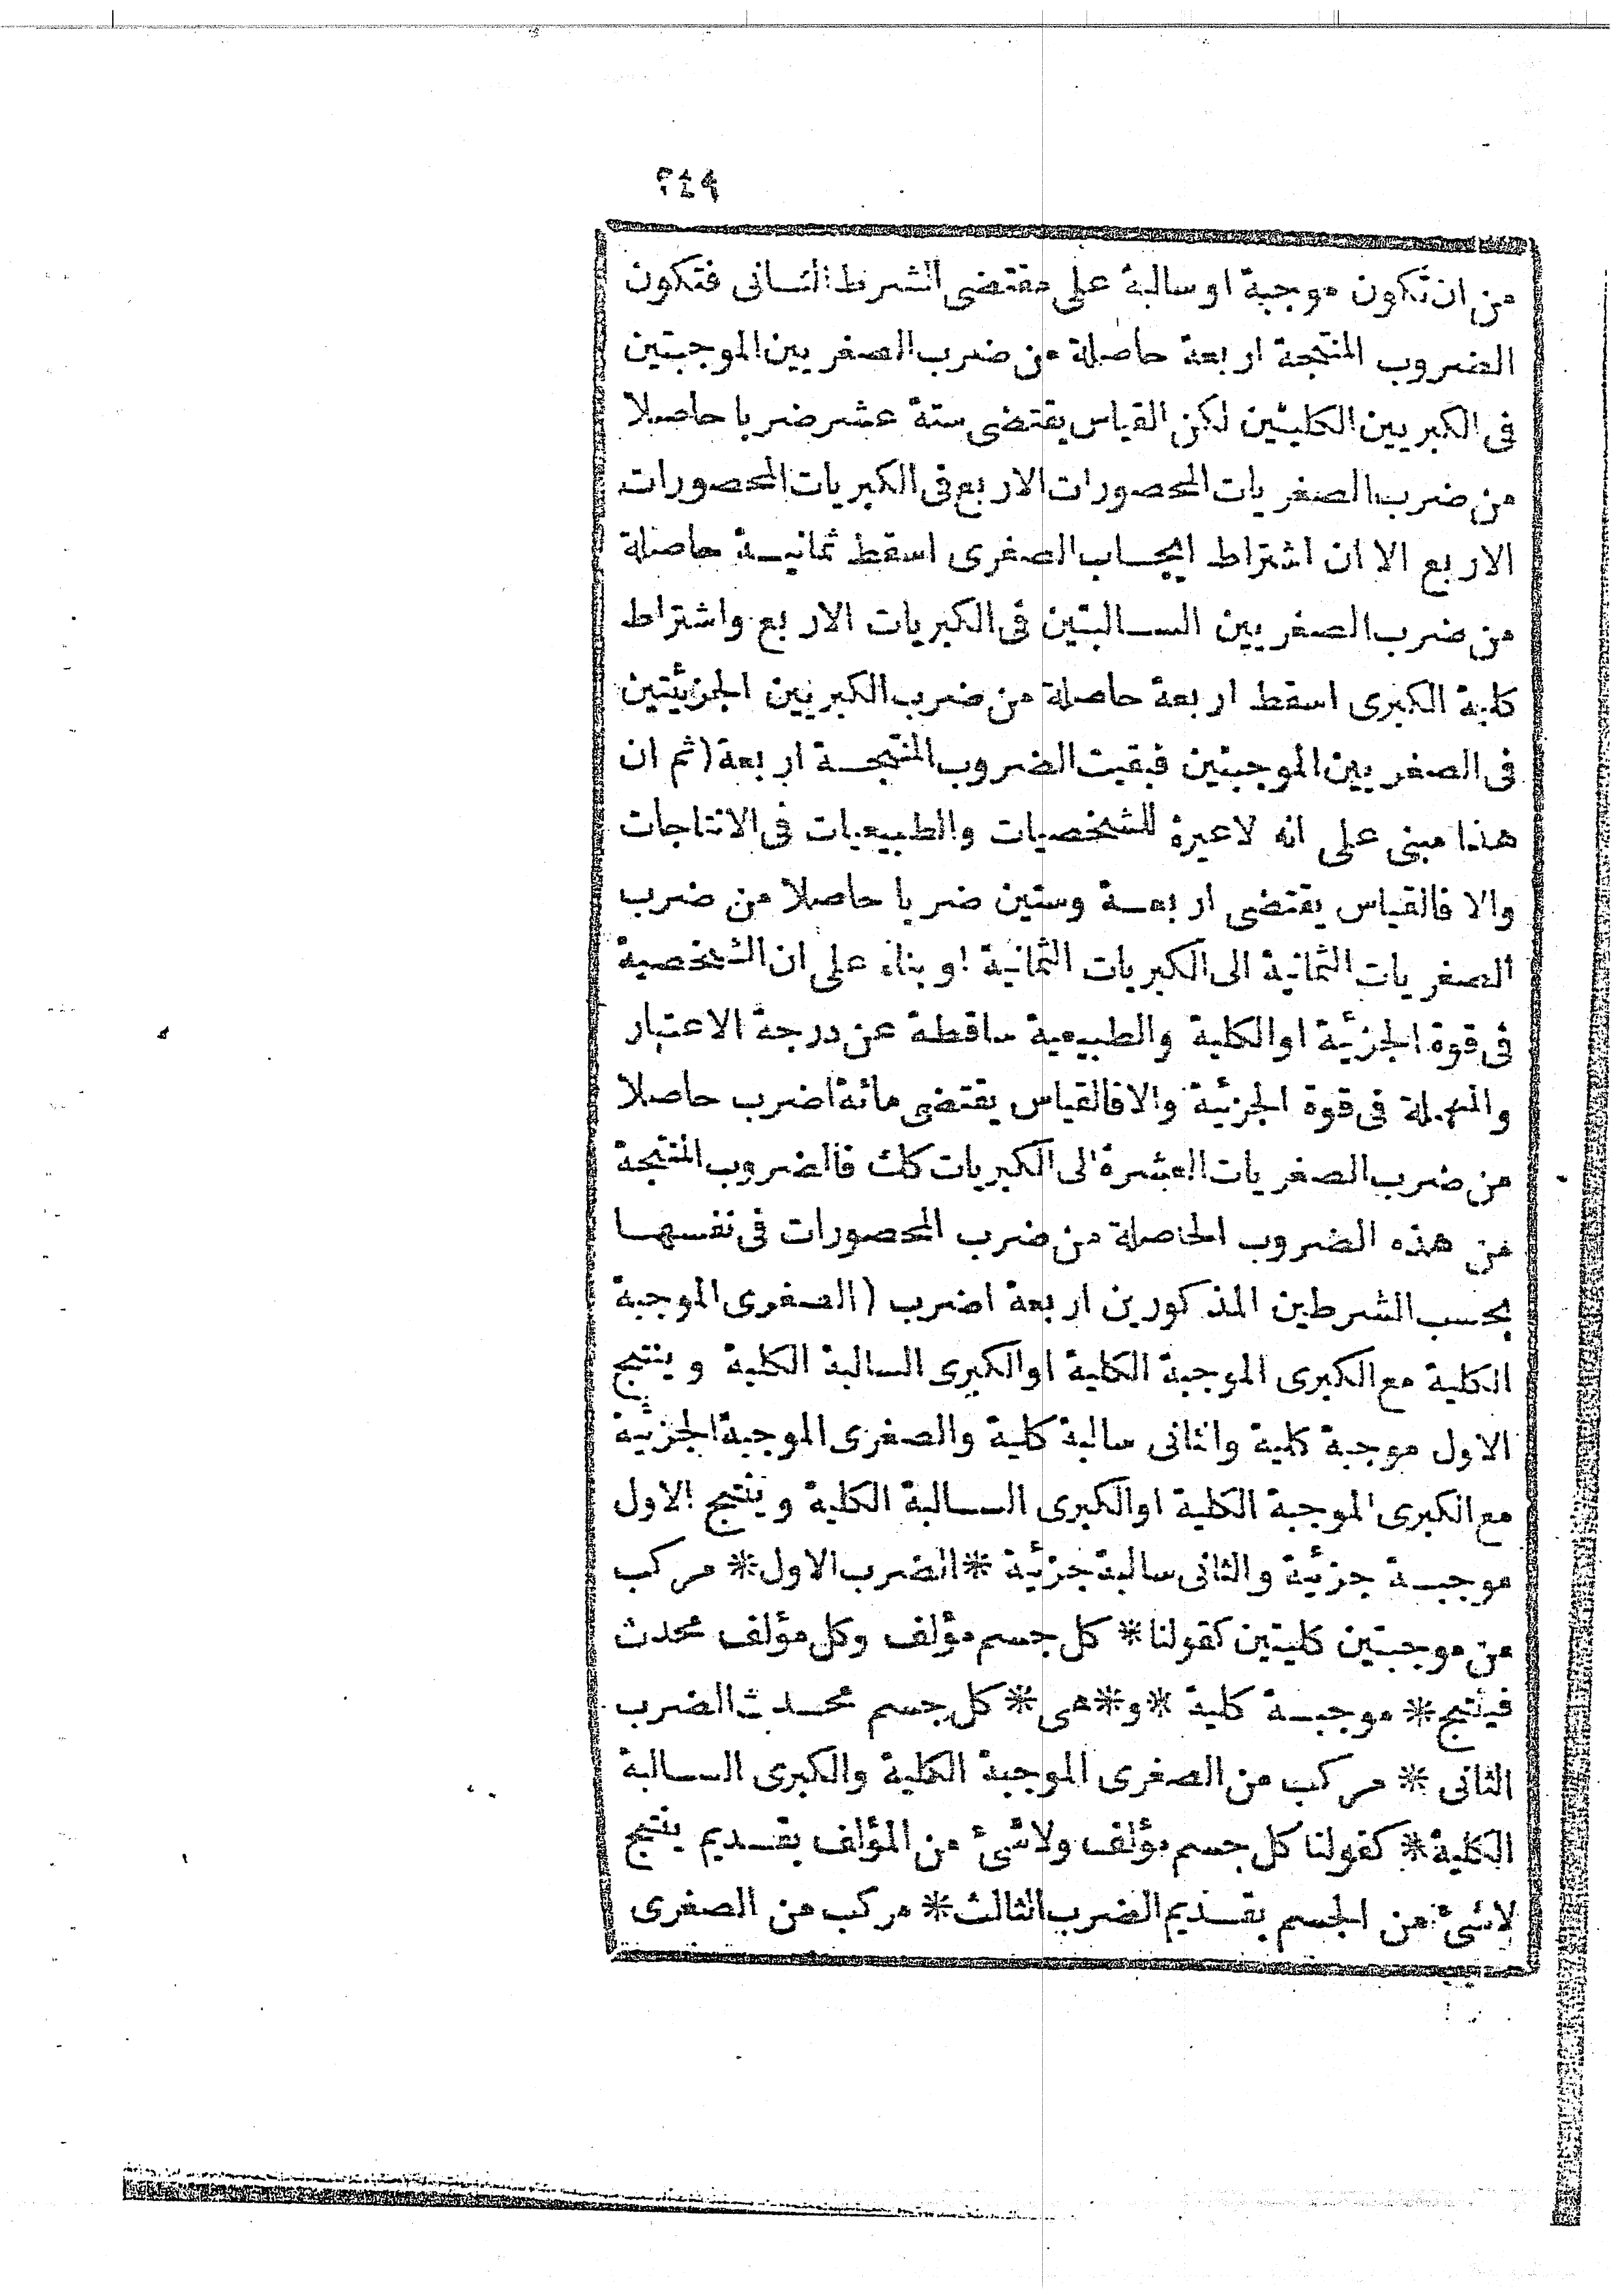 ٢٤٩
من ان تكون موجبة او سالبة على مقتضى الشرط الثانى فتكون
الضروب المنتجة اربعة حاصلة من ضرب الصغريين الموجبتين
فى الكبريين الكليتين لكن القياس يقتضى ستة عشر ضربا حاصلا
من ضرب الصغريات المحصورات الاربع فى الكبريات المحصورات
الاربع الا ان اشتراط ايجاب الصغرى اسقط ثمانية حاصلة
من ضرب الصغريين السالبتين فى الكبريات الاربع واشتراط
كلية الكبرى اسقط اربعة حاصلة من ضرب الكبريين الجزئيتين
فى الصغريين الموجبتين فبقيت الضروب المنتجة اربعة (ثم ان
هذا مبنى على انه لاعبرة للشخصيات والطبيعيات فى الانتاجات
والا فالقياس يقتضى اربعة وستين ضربا حاصلا من ضرب
الصغريات الثمانية الى الكبريات الثمانية او بناء على ان الشخصية
فى قوة الجزئية او الكلية والطبيعية ساقطة عن درجة الاعتبار
والمهملة فى قوة الجزئية والا فالقياس يقتضى مائة اضرب حاصلا
من ضرب الصغريات العشرة الى الكبريات كك فالضروب المنتجة
من هذه الضروب الحاصلة من ضرب المحصورات فى نفسها
بحسب الشرطين المذكورين اربعة اضرب (الصغرى الموجبة
الكلية مع الكبرى الموجبة الكلية او الكبرى السالبة الكلية وينتج
الاول موجبة كلية والثانى سالبة كلية والصغرى الموجبة الجزئية
مع الكبرى الموجبة الكلية او الكبرى السالبة الكلية وينتج الاول
موجبة جزئية والثانى سالبة جزئية * الضرب الاول * مركب
من موجبتين كليتين كقولنا * كل جسم مؤلف وكل مؤلف محدث
فينتج * موجبة كلية * و * هى * كل جسم محدث الضرب
الثانى * مركب من الصغرى الموجبة الكلية والكبرى السالبة
الكلية * كقولنا كل جسم مؤلف ولاشئ من المؤلف بقديم ينتج
لاشئ من الجسم بقديم الضرب الثالث * مركب من الصغرى